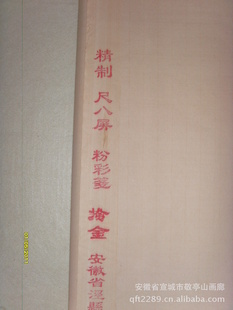 精制 尺八屏 粉彩笺 掐金 安徽省泾县
安徽省宣城市敬亭山画廊
qft2289.china.alibaba.com